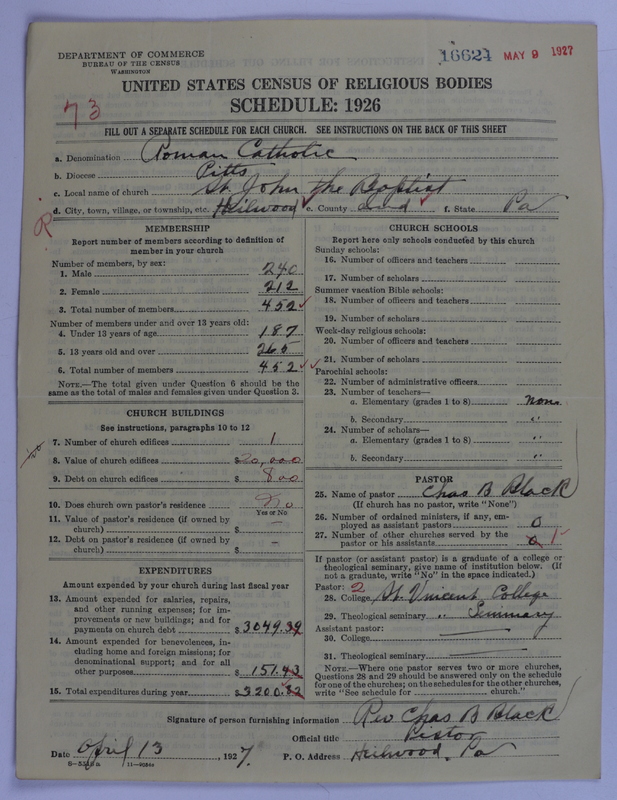 DEPARTMENT OF COMMERCE
BUREAU OF THE CENSUS
WASHINGTON
16624 MAY 9 1927
UNITED STATES CENSUS OF RELIGIOUS BODIES
SCHEDULE: 1926
73
FILL OUT A SEPARATE SCHEDULE FOR EACH CHURCH. SEE INSTRUCTIONS ON THE BACK OF THIS SHEET
a. Denomination Roman Catholic
b. Diocese Pitts
c. Local name of church St. John the Baptist
d. City, town, village, or township, etc. Heilwood e. County f. State Pa
R
MEMBERSHIP
Report number of members according to definition of
member in your church
Number of members, by sex:
1. Male 240
2. Female 212
3. Total number of members 452
Number of members under and over 13 years old:
4. Under 13 years of age 187
5. 13 years old and over 265
6. Total number of members 452
NOTE.—The total given under Question 6 should be
same as the total of males and females given under Question 3.
CHURCH BUILDINGS
See instructions, paragraphs 10 to 12
7. Number of church edifices 1
8. Value of church edifices $20,000
9. Debt on church edifices $ 800
10. Does church own pastor's residence No
Yes or No
11. Value of pastor's residence (if owned by
church) $ —
12. Debt on pastor's residence (if owned by
church) $ —
EXPENDITURES
Amount expended by your church during last fiscal year
13. Amount expended for salaries, repairs,
and other running expenses; for im-
provements or new buildings; and for
payments on church debt $3049.39
14. Amount expended for benevolences, in-
cluding home and foreign missions; for
denominational support; and for all
other purposes $151.43
15. Total expenditures during year $3200.82
CHURCH SCHOOLS
Report here only schools conducted by this church
Sunday schools:
16. Number of officers and teachers
17. Number of scholars
Summer vacation Bible schools:
18. Number of officers and teachers
19. Number of scholars
Week-day religious schools:
20. Number of officers and teachers
21. Number of scholars
Parochial schools:
22. Number of administrative officers
23. Number of teachers—
a. Elementary (grades 1 to 8) None
b. Secondary "
24. Number of scholars—
a. Elementary (grades 1 to 8) "
b. Secondary "
PASTOR
25. Name of pastor Chas B Black
(If church has no pastor, write "None")
26. Number of ordained ministers, if any, em-
ployed as assistant pastors 0
27. Number of other churches served by the
pastor or his assistants 0 1
If pastor (or assistant pastor) is a graduate of a college or
theological seminary, give name of institution below. (If
not a graduate, write "No" in the space indicated.)
Pastor: 2
28. College St. Vincent College
29. Theological seminary " Seminary
Assistant pastor:
30. College
31. Theological seminary
NOTE.—Where one pastor serves two or more churches,
Questions 28 and 29 should be answered only on the schedule
for one of the churches; on the schedules for the other churches,
write "See schedule for church."
Signature of person furnishing information Rev Chas B Black
Official title Pastor
Date April 13, 1927. P. O. Address Heilwood, Pa